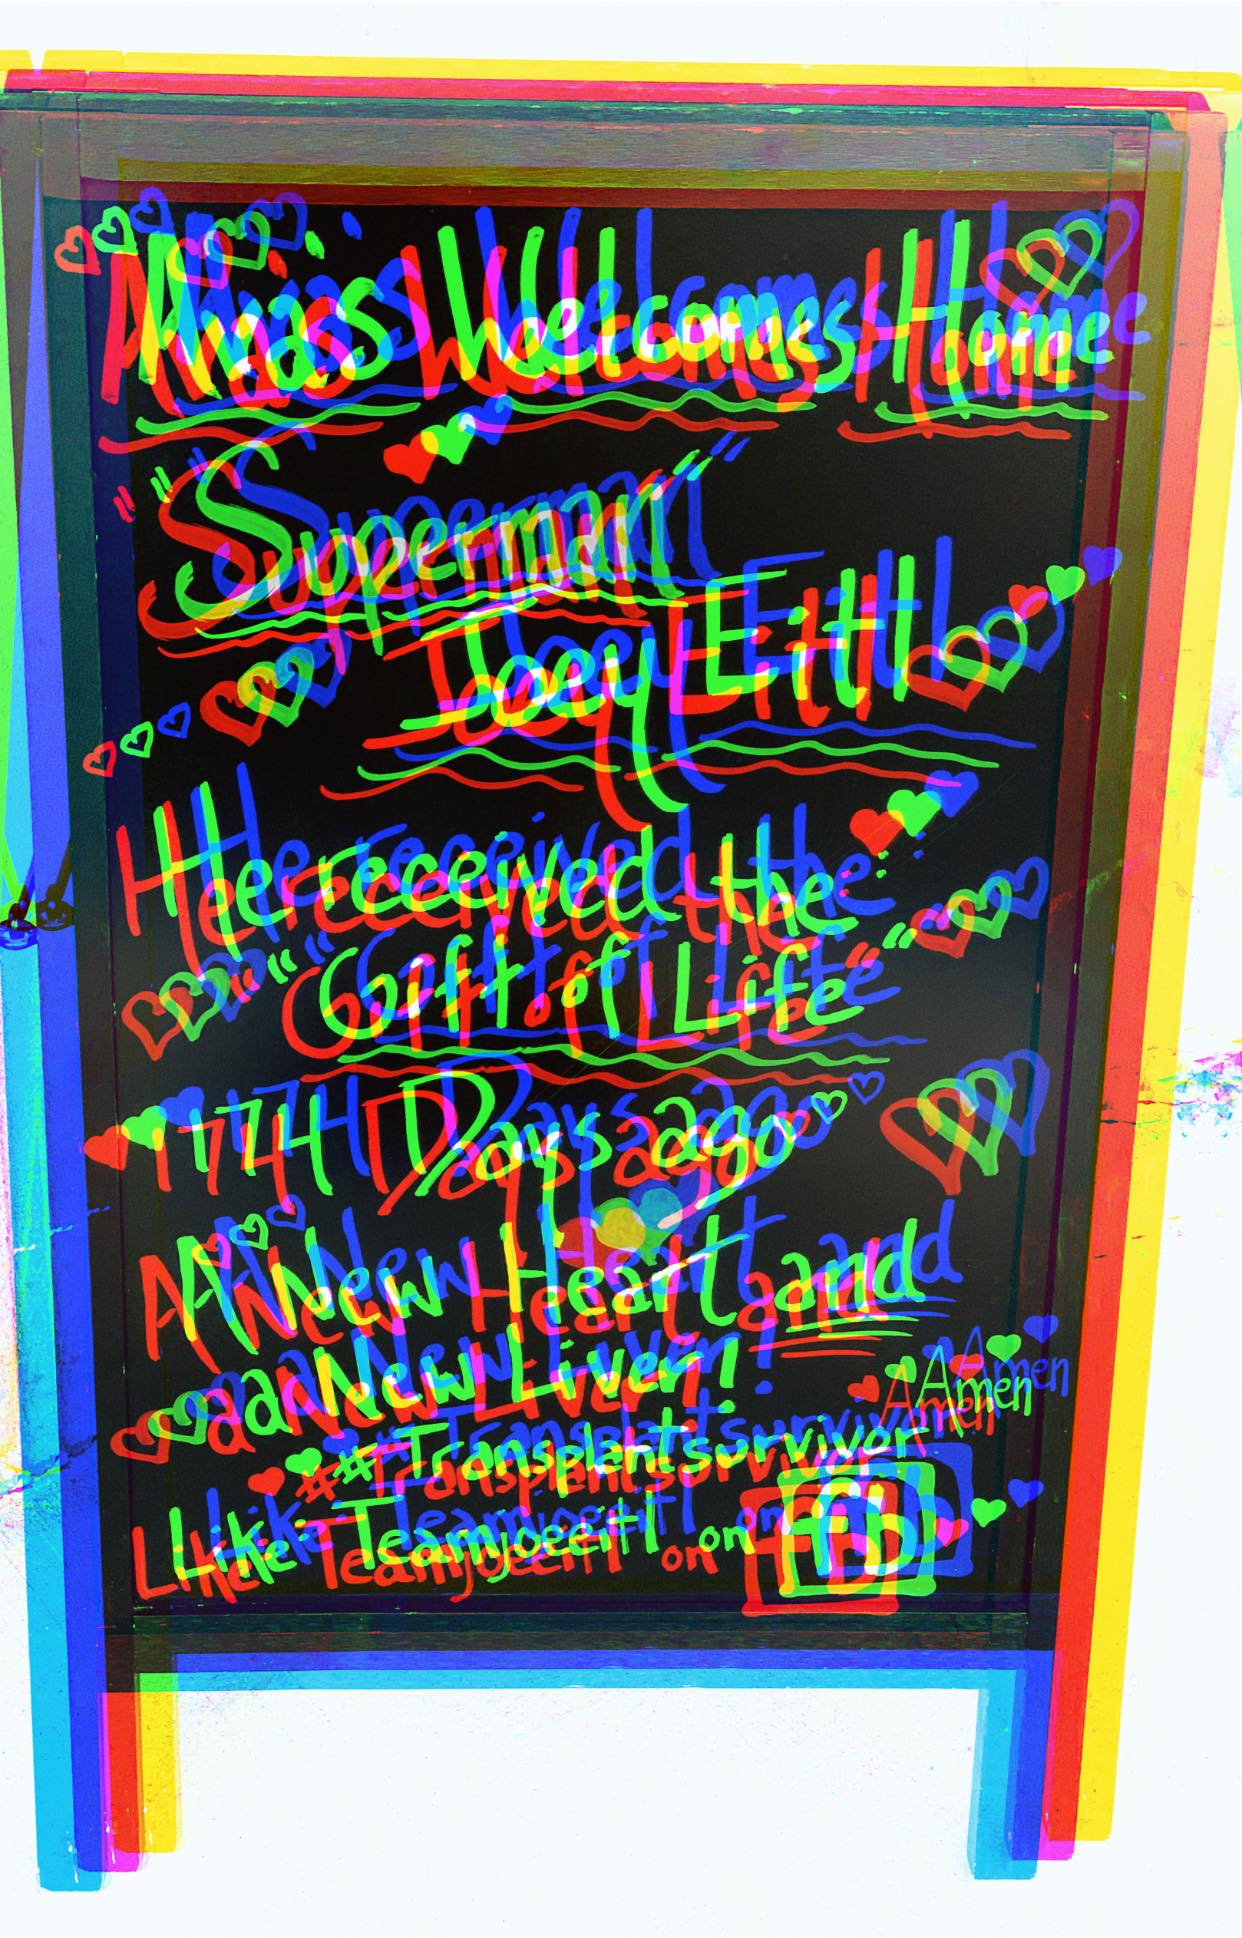 Welcomes Home
"Superman"
Joey Eitl
He received the
"Gift of Life"
174 Days ago
A New Heart and
a New Liver!
Amen
#Transplantsurvivor
Like Teamjoeeitl on fb